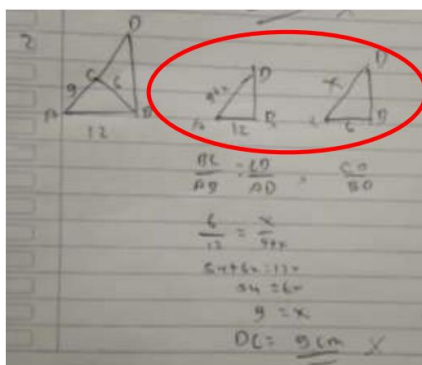 2
D
C
9
6
A
B
12
D
9+x
A
12
B
D
x
C
6
B
BC/AB = CD/AD , CD/BD
6/12 = x/9+x
54+6x=12x
54 = 6x
9 = x
DC = 9cm X